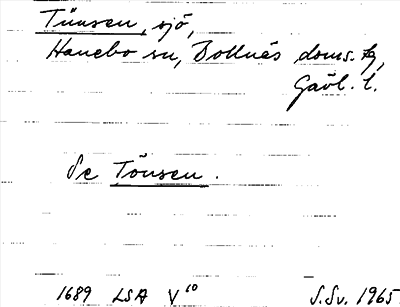 Tünsen, sjö,
Hanebo sn, Bollnäs doms. tg,
Gävl. l.
Se Tönsen.
1689 LSA V¹⁰ S.Sv. 1965